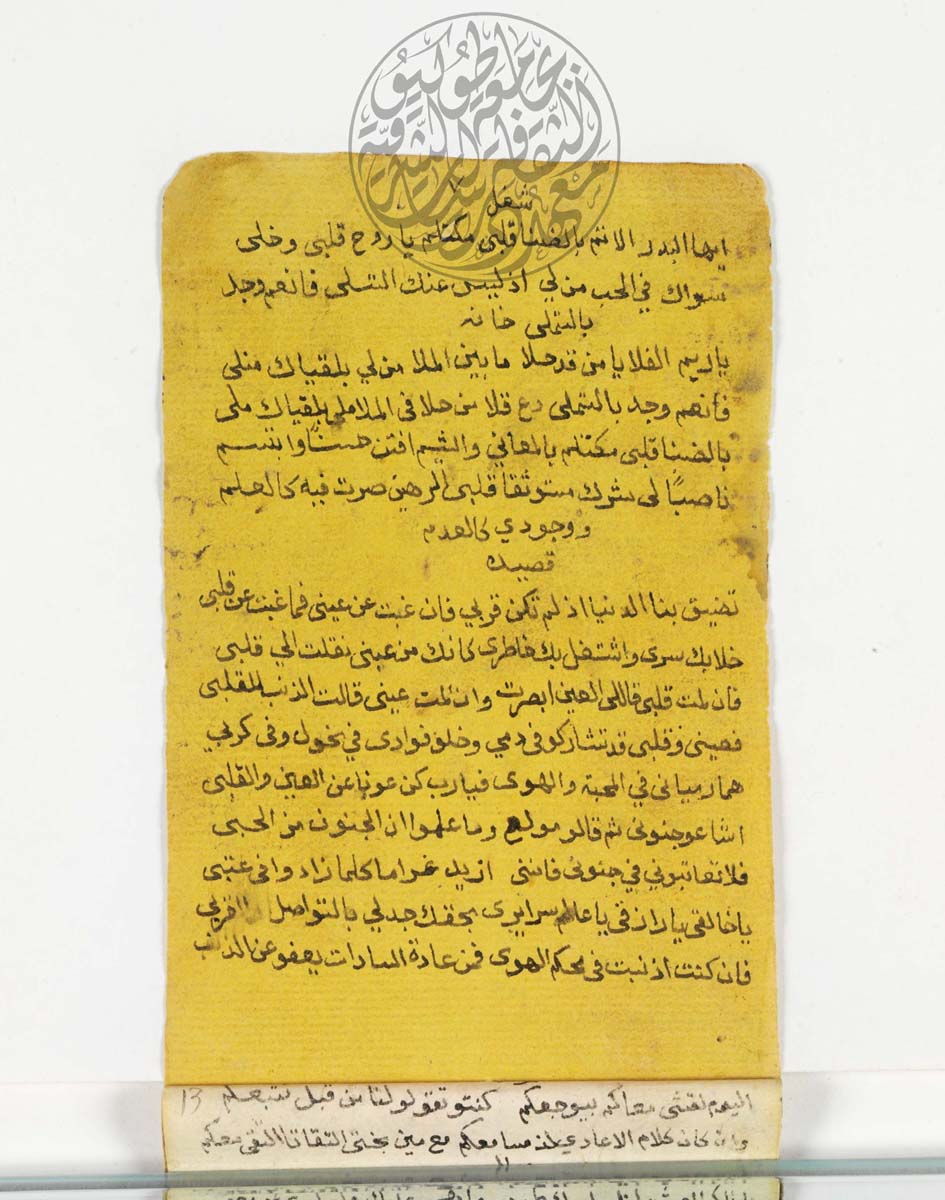 شغل
ايها البدر الاتم بالضنا قلبي مكتلم يا روح قلبي وخلى
سواك في الحب من لي اذ ليس عنك التسلى فانعم وجد
بالتملى خانه
يا ريم الفلا يا من قد حلا ما بين الملا من لي بلقياك منلى
فانعم وجد بالتملى دع قلا من حلا في الملا ملي بلقياك ملى
بالضنا قلبى مكتلم بالمعاني والشيم افتن حسنًا وابتسم
ناصبًا لى شرك مستوثقا قلبى الرهين صرت فيه كالعلم
ووجودي كالعدم
قصيده
تضيق بنا الدنيا اذ لم تكن قربي فان غبت عن عينى فما غبت عن قلبى
خلا بك سرى واشتغل بك خاطرى كانك من عينى نقلت الي قلبى
فان لمت قلبى قال لى العين ابصرت وان لمت عينى قالت الذنب للقلبى
فعينى وقلبى قد تشاركو فى دمي وخلو فوادى في نحول وفى كربي
هما رمياني في المحبة والهوى فيارب كن عونا عن العين والقلبى
اشاعو جنونى ثم قالو مولع وما علموا ان الجنون من الحبى
فلا تعاتبوني في جنونى فاننى ازيد غراما كلما زاد وا فى عتبى
يا خالقى يا رازقى يا عالم سرايرى بحقك جد لي بالتواصل والقربي
فان كنت اذنبت فى حكم الهوى فمن عادة السادات يعفو عن الذنب
اليوم نقشى معاكم بيوجعكم كنتو تقولو لنا من قبل نتبعكم 13
وان كان كلام الاعادي لذ مسامعكم مع مين بختى التقانا التقى معكم